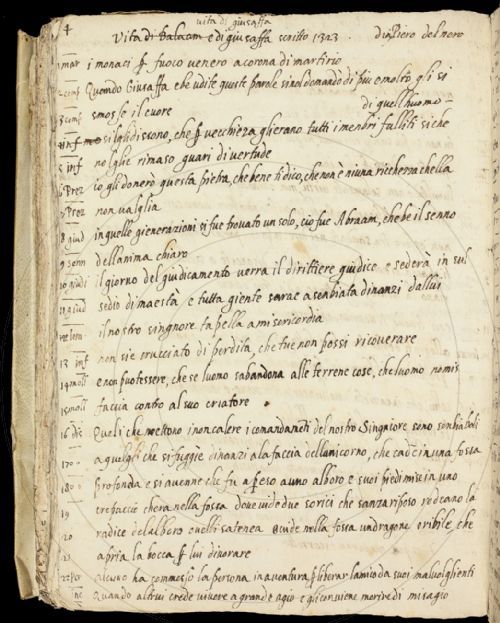 4
vita di giusaffa
Vita di Balaam e di giusaffa scritto 1323 . di Piero del nero
1 mar i monaci p fuoco venero a corona di martirio
2 comp Quando Giusaffa ebe udite queste parole sinol domando di piu e molto gli si
3 comp smosse il cuore di quell huomo
4 inf silgli dissono, che p vechieza glierano tutti i menbri falliti siche
5 inf nolglie rimaso guari di vertude
6 Prez io gli donero questa pietra, che bene ti dico, che non è niuna richezza chella
7 Prez non valglia
8 giud in quelle gienerazioni si fue trovato un solo, cio fue Abraam, che be il senno
9 senn dell anima chiaro
10 giudi il giorno del guidicamento verra il dirittiere guidice e sederà in sul
11 giud sedio di maestà e tutta giente sarae asenbiata dinanzi da llui
12 il nostro singnore ta pella a misericordia
13 inf non sie crucciato di perdita, che tue non possi ricoverare
14 molt e non puotessere, che se luomo sabandona alle terrene cose, che luomo nomis
15 molt faccia contro al suo criatore
16 dis Queli che mettono in non calere i comandamenti del nostro Singniore sono sonbiaboli
17 a quelgli che si fuggie dinanzi ala faccia dellunicorno, che cadde in una fossa
18 profonda e si avenne che fu apeso a uno albero e suoi piedi mise in uno
19 trepaccio chera nella fossa dove vide due sorici che sanza riposo rodeano la
20 radice del albero ouelli satenea e vide nella fossa un dragone oribile, che
21 apria la bocca p lui divorare
22 per alcuno ha commesso la persona in aventura p liberar lamico da suoi malvolglienti
inc Quando altrui crede vivere a grande agio e gli conviene morire di misagio